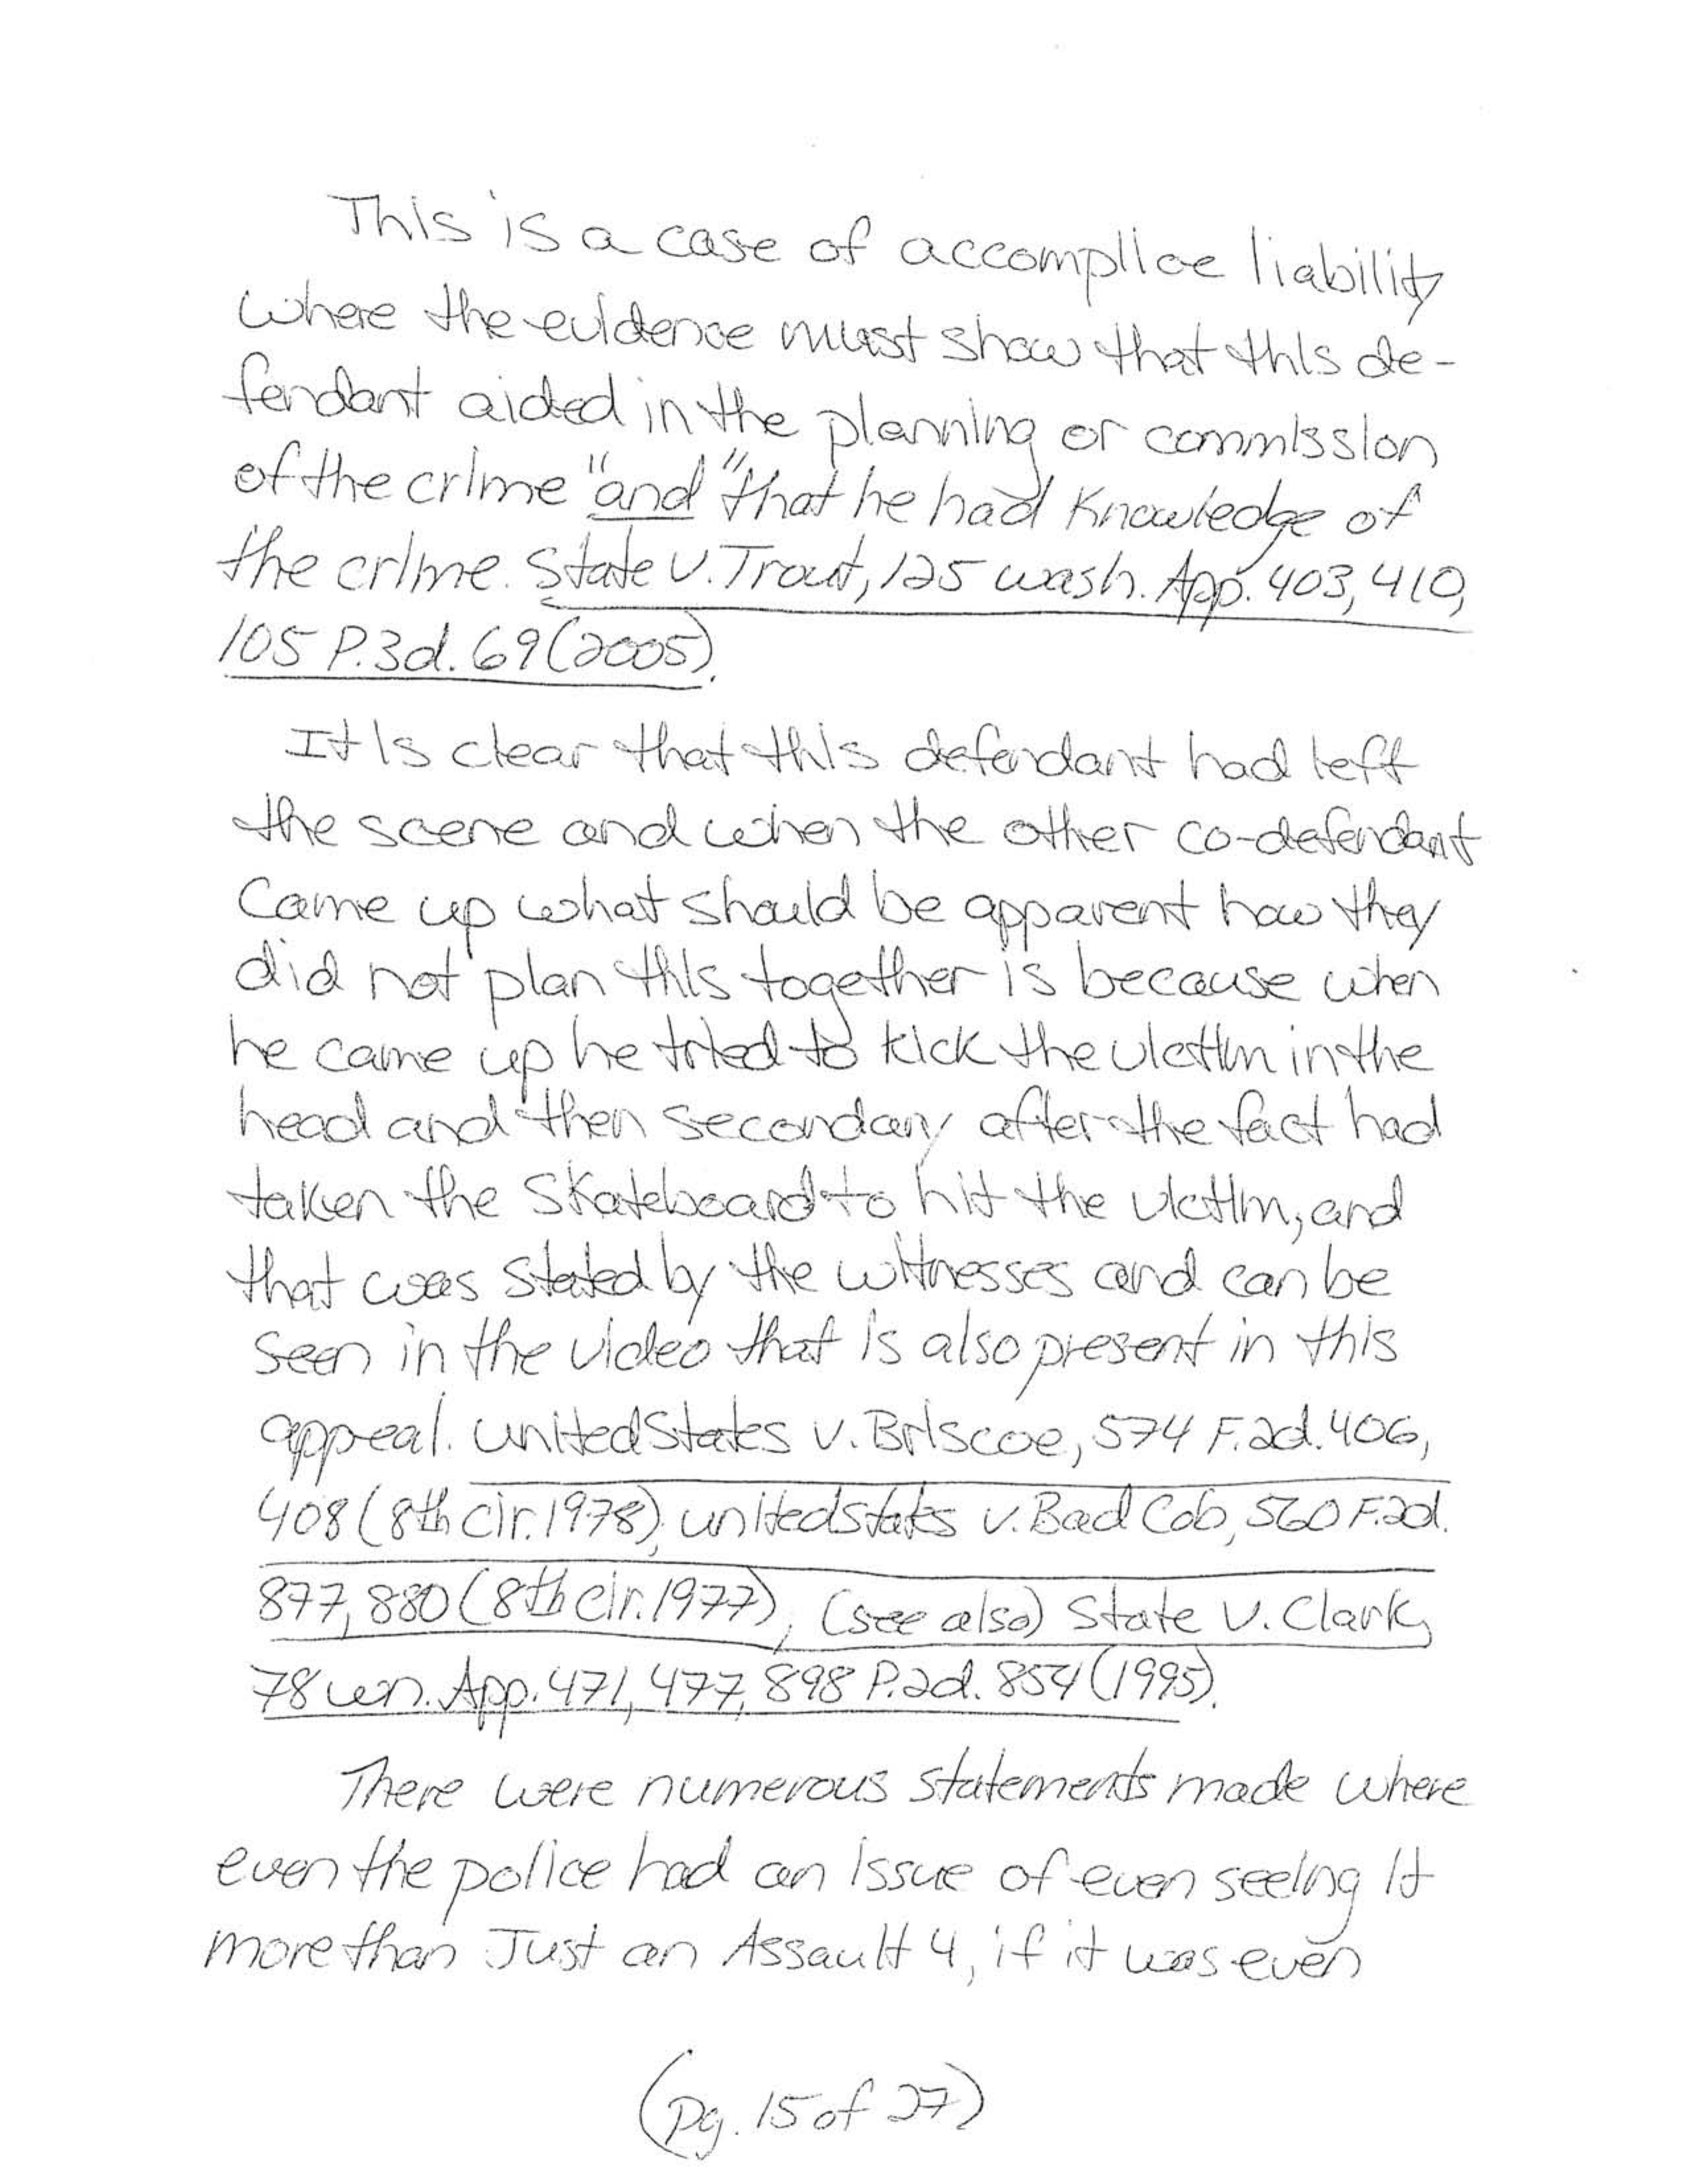 This is a case of accomplice liability
where the evidence must show that this de-
fendant aided in the planning or commission
of the crime "and" that he had knowledge of
the crime. State v. Trout, 125 wash. App. 403, 410,
105 P.3d. 69 (2005).
It is clear that this defendant had left
the scene and when the other co-defendant
came up what should be apparent how they
did not plan this together is because when
he came up he tried to kick the victim in the
head and then secondary after the fact had
taken the skateboard to hit the victim, and
that was stated by the witnesses and can be
seen in the video that is also present in this
appeal. United States v. Briscoe, 574 F.2d. 406,
408 (8th cir. 1978), united states v. Bad Cob, 560 F.2d.
877, 880 (8th cir. 1977), (see also) State v. Clark,
78 wn. App. 471, 477, 898 P.2d. 854 (1995).
There were numerous statements made where
even the police had an issue of even seeing it
more than Just an Assault 4, if it was even
(pg. 15 of 27)